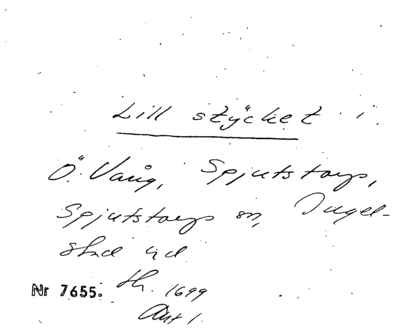 Lill stycket i
Ö. Vång, Spjutstorps,
Spjutstorps sn, Ingel-
stad hd
th. 1699
Nr 7655.
Akt 1.